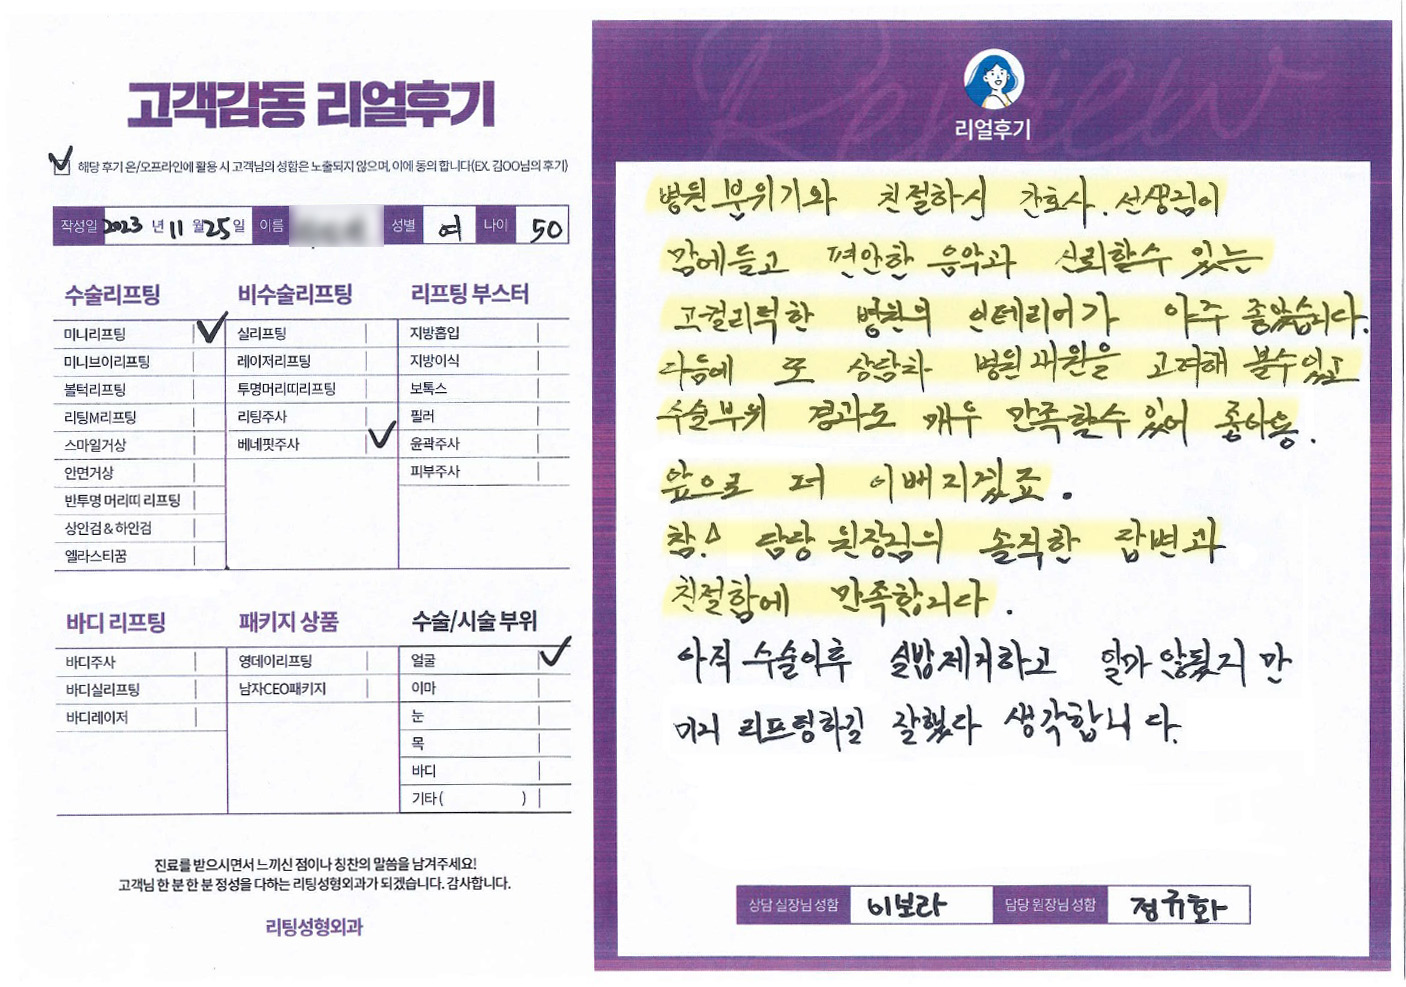 고객감동 리얼후기
해당 후기 온/오프라인에 활용 시 고객님의 성함은 노출되지 않으며, 이에 동의 합니다(EX. 김OO님의 후기)
작성일 2023 년 11 월 25 일 이름 성별 여 나이 50
수술리프팅
미니리프팅
미니브이리프팅
볼턱리프팅
리팅M리프팅
스마일거상
안면거상
반투명 머리띠 리프팅
상안검 & 하안검
엘라스티꿈
비수술리프팅
실리프팅
레이저리프팅
투명머리띠리프팅
리팅주사
베네핏주사
리프팅 부스터
지방흡입
지방이식
보톡스
필러
윤곽주사
피부주사
바디 리프팅
바디주사
바디실리프팅
바디레이저
패키지 상품
영데이리프팅
남자CEO패키지
수술/시술 부위
얼굴
이마
눈
목
바디
기타 ( )
진료를 받으시면서 느끼신 점이나 칭찬의 말씀을 남겨주세요!
고객님 한 분 한 분 정성을 다하는 리팅성형외과가 되겠습니다. 감사합니다.
리팅성형외과
Review
리얼후기
병원 분위기와 친절하신 간호사. 선생님이
맘에들고 편안한 음악과 신뢰할수 있는
고컬리틱한 병원의 인테리어가 아주 좋았습니다.
다음에 또 상담차 병원 내원을 고려해 볼수있고
수술부위 경과도 매우 만족할수 있어 좋아용.
앞으로 더 이뻐지겠죠.
참! 담당 원장님의 솔직한 답변과
친절함에 만족합니다.
아직 수술이후 실밥제거하고 얼마 않됬지만
미리 리프팅하길 잘했다 생각합니다.
상담 실장님 성함 이보라 담당 원장님 성함 정규화